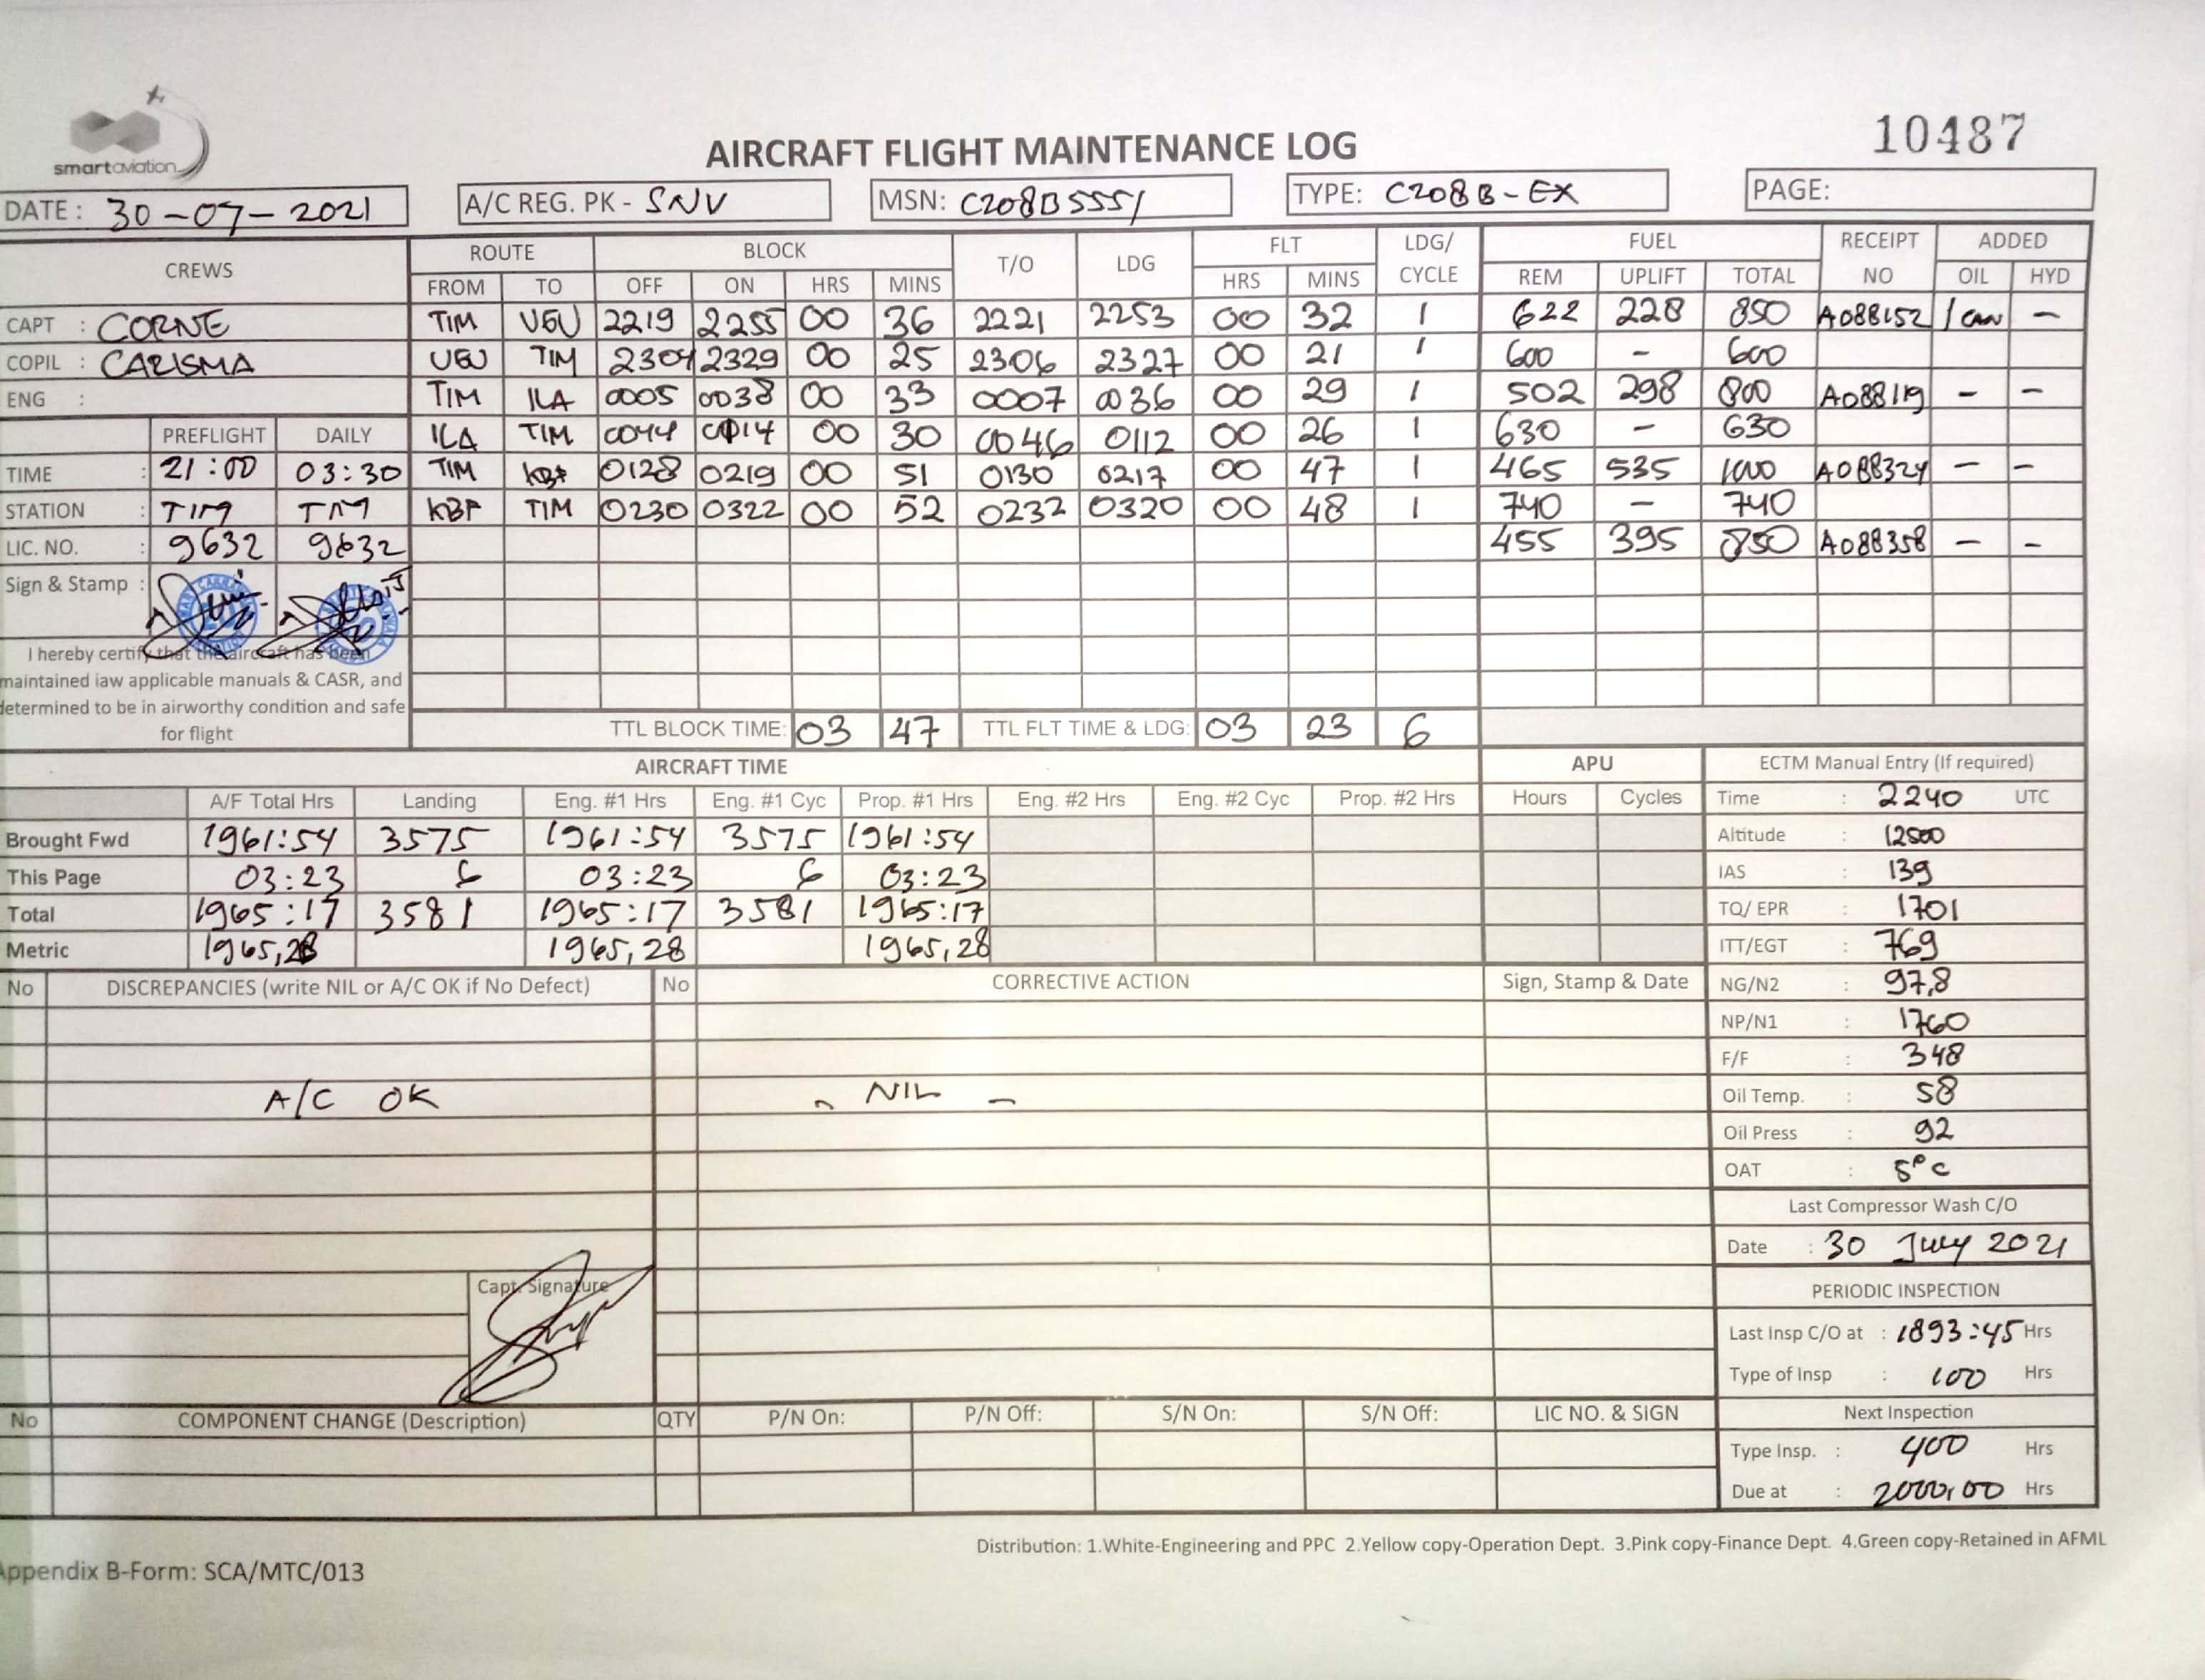 smartaviation
AIRCRAFT FLIGHT MAINTENANCE LOG
10487
DATE : 30-07-2021 A/C REG. PK - SNV MSN: C208B5551 TYPE: C208B-EX PAGE:
CREWS ROUTE BLOCK T/O LDG FLT LDG/ CYCLE FUEL RECEIPT NO ADDED
FROM TO OFF ON HRS MINS HRS MINS REM UPLIFT TOTAL OIL HYD
CAPT : CORNE TIM UGU 2219 2255 00 36 2221 2253 00 32 1 622 228 850 A088152 1 CAN -
COPIL : CARISMA UGU TIM 2304 2329 00 25 2306 2327 00 21 1 600 - 600
ENG : TIM ILA 0005 0038 00 33 0007 0036 00 29 1 502 298 800 A088119 - -
PREFLIGHT DAILY ILA TIM 0044 0114 00 30 0046 0112 00 26 1 630 - 630
TIME : 21:00 03:30 TIM KBF 0128 0219 00 51 0130 0217 00 47 1 465 535 1000 A088324 - -
STATION : TIM TIM KBF TIM 0230 0322 00 52 0232 0320 00 48 1 740 - 740
LIC. NO. : 9632 9632 455 395 850 A088358 - -
Sign & Stamp :
I hereby certify that the aircraft has been
maintained iaw applicable manuals & CASR, and
determined to be in airworthy condition and safe
for flight
TTL BLOCK TIME: 03 47 TTL FLT TIME & LDG: 03 23 6
AIRCRAFT TIME APU ECTM Manual Entry (If required)
A/F Total Hrs Landing Eng. #1 Hrs Eng. #1 Cyc Prop. #1 Hrs Eng. #2 Hrs Eng. #2 Cyc Prop. #2 Hrs Hours Cycles Time : 2240 UTC
Brought Fwd 1961:54 3575 1961:54 3575 1961:54 Altitude : 12500
This Page 03:23 6 03:23 6 03:23 IAS : 139
Total 1965:17 3581 1965:17 3581 1965:17 TQ/ EPR : 1701
Metric 1965,28 1965,28 1965,28 ITT/EGT : 769
No DISCREPANCIES (write NIL or A/C OK if No Defect) No CORRECTIVE ACTION Sign, Stamp & Date NG/N2 : 97,8
NP/N1 : 1760
F/F : 348
A/C OK - NIL - Oil Temp. : 58
Oil Press : 92
OAT : 5°C
Last Compressor Wash C/O
Date : 30 July 2021
Capt. Signature
PERIODIC INSPECTION
Last Insp C/O at : 1893:45 Hrs
Type of Insp : 100 Hrs
No COMPONENT CHANGE (Description) QTY P/N On: P/N Off: S/N On: S/N Off: LIC NO. & SIGN Next Inspection
Type Insp. : 400 Hrs
Due at : 2000,00 Hrs
Distribution: 1.White-Engineering and PPC 2.Yellow copy-Operation Dept. 3.Pink copy-Finance Dept. 4.Green copy-Retained in AFML
Appendix B-Form: SCA/MTC/013